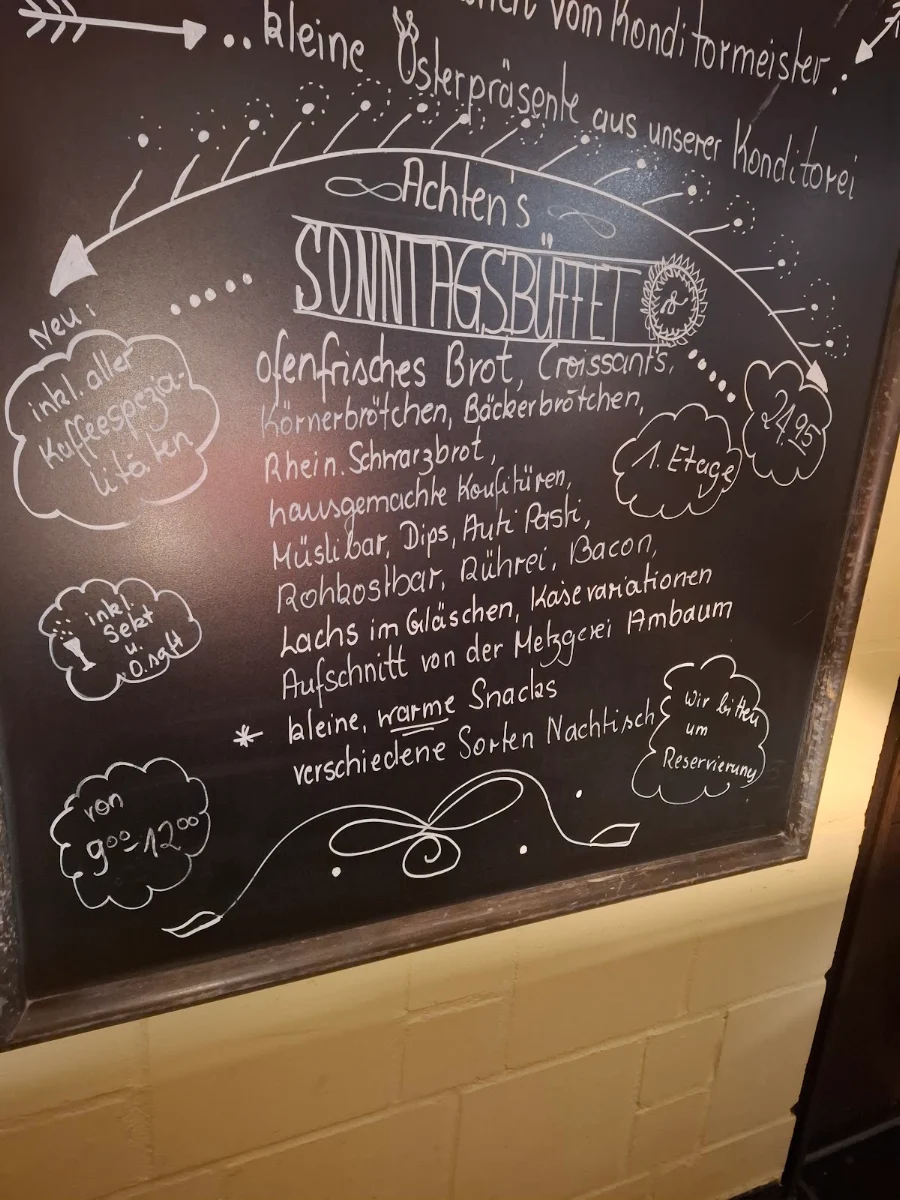 vom Konditormeister..
..kleine Osterpräsente aus unserer Konditorei
Achten's
SONNTAGSBÜFFET
Neu:
inkl. aller
Kaffeespezia-
litäten
ofenfrisches Brot, Croissants,
Körnerbrötchen, Bäckerbrötchen,
Rhein. Schwarzbrot,
hausgemachte Konfitüren,
Müslibar, Dips, Anti Pasti,
Rohkostbar, Rührei, Bacon,
Lachs im Gläschen, Käsevariationen
Aufschnitt von der Metzgerei Ambaum
* kleine, warme Snacks
verschiedene Sorten Nachtisch
24,95
1. Etage
inkl.
Sekt
u.
O.saft
von
9⁰⁰-12⁰⁰
Wir bitten
um
Reservierung